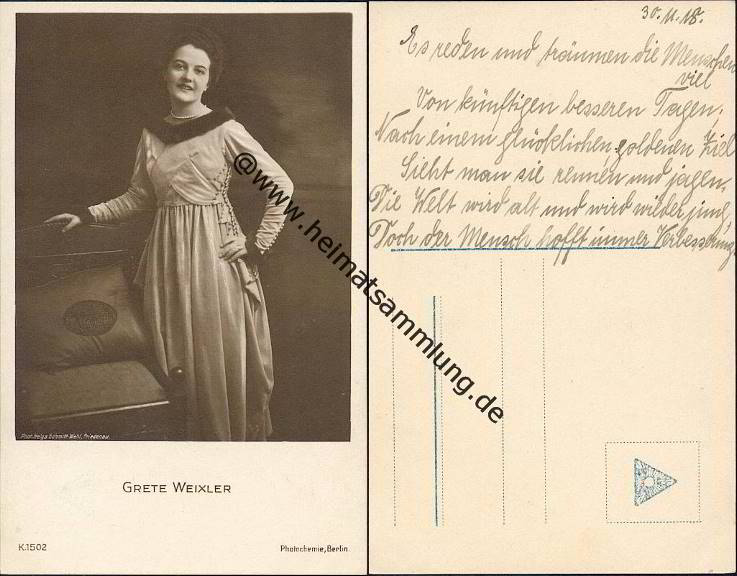 Phot. Helga Schmidt-Wehl, Friedenau.
GRETE WEIXLER
K.1502
Photochemie, Berlin.
30.11.18.
Es reden und träumen die Menschen
viel
Von künftigen besseren Tagen;
Nach einem glücklichen, goldenen Ziel
Sieht man sie rennen und jagen.
Die Welt wird alt und wird wieder jung,
Doch der Mensch hofft immer Verbesserung.
@www.heimatsammlung.de